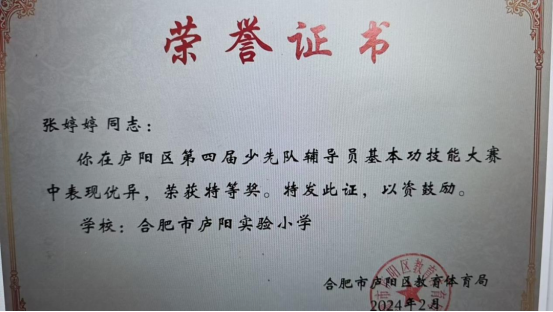 荣誉证书
张婷婷 同志：
你在庐阳区第四届少先队辅导员基本功技能大赛
中表现优异，荣获特等奖。特发此证，以资鼓励。
学校：合肥市庐阳实验小学
合肥市庐阳区教育体育局
2024年2月